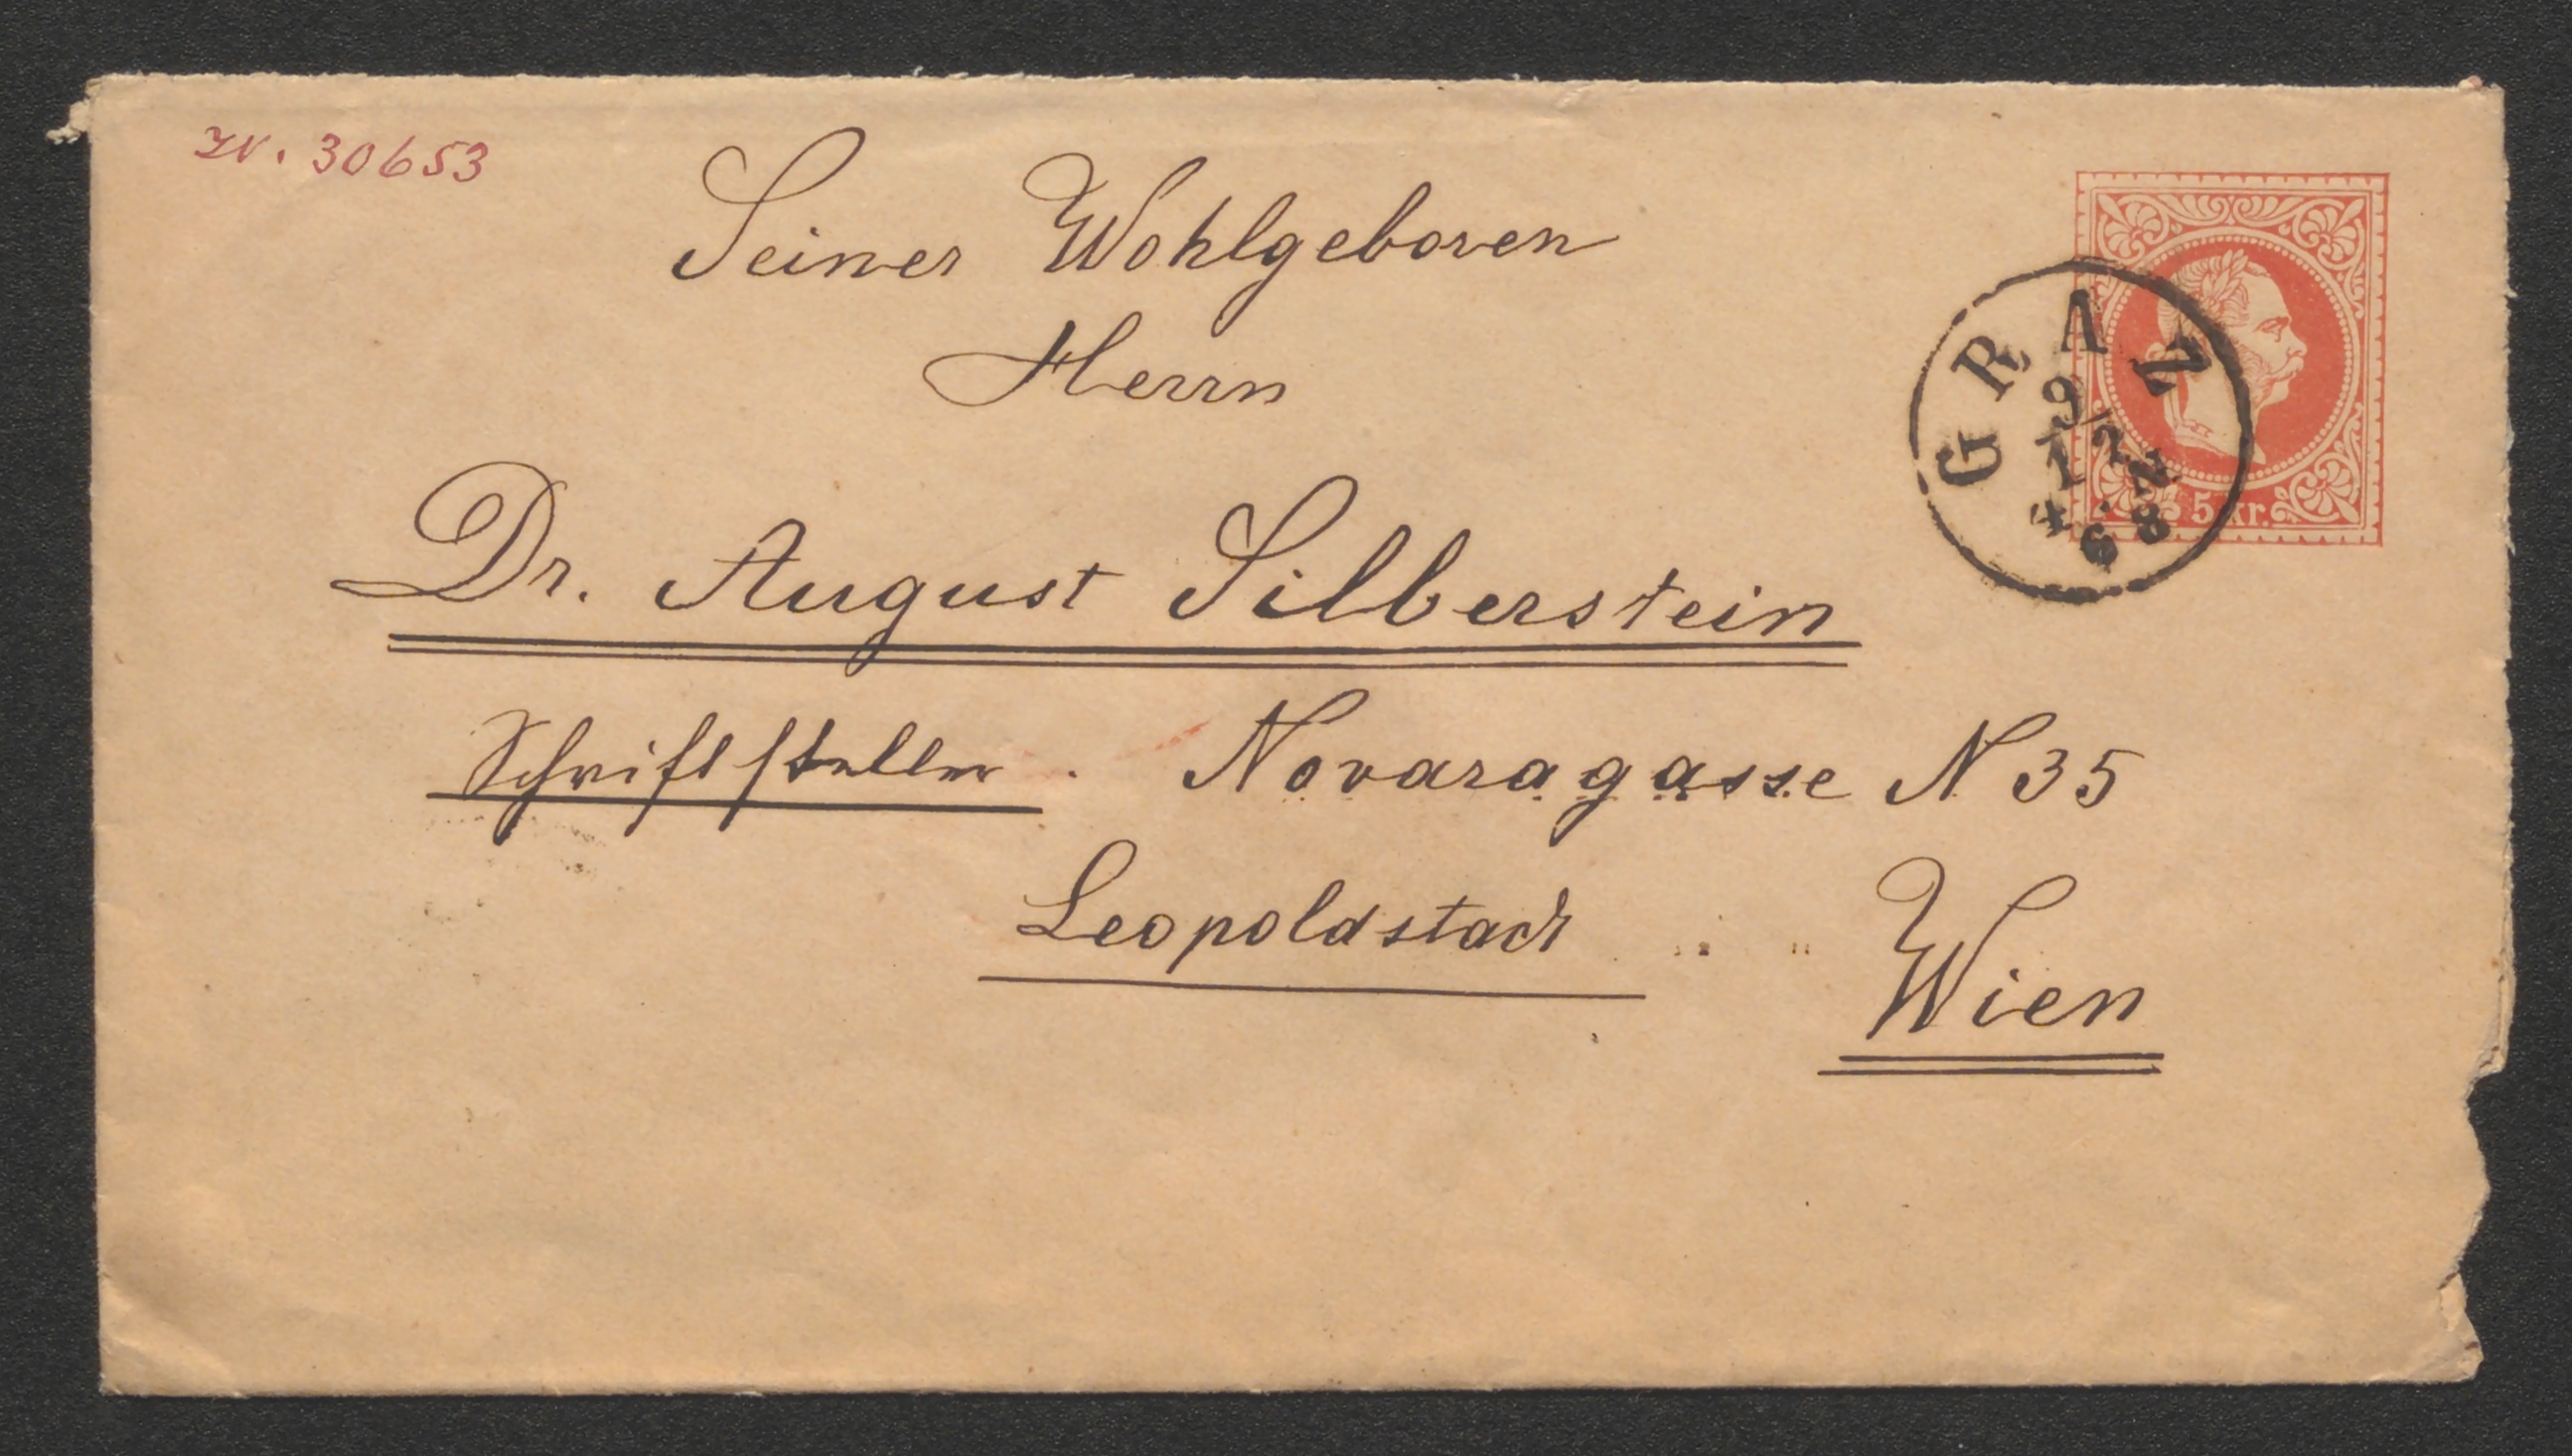 IN. 30653
Seiner Wohlgeboren
Herrn
Dr. August Silberstein
Schriftsteller. Novaragasse N 35
Leopoldstadt
Wien
GRAN
9/12
4.N
68
5 kr.